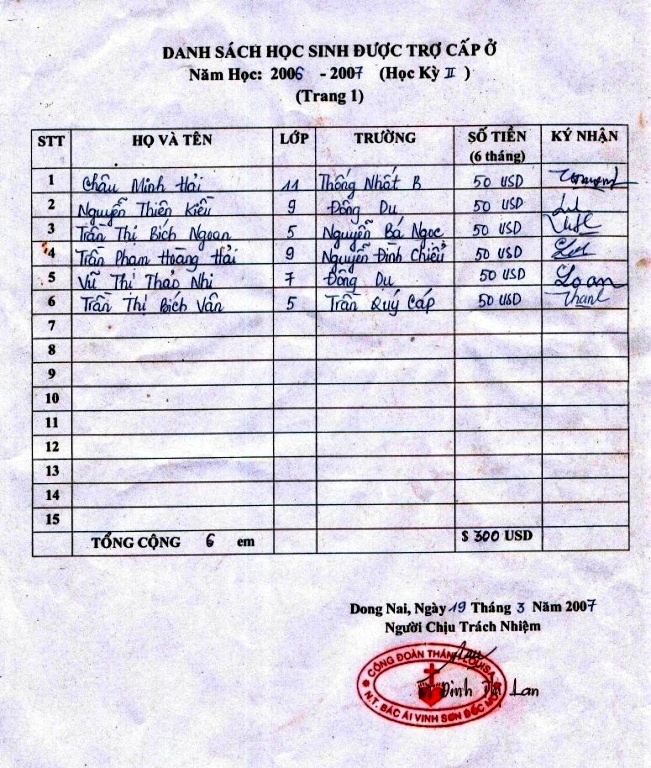 DANH SÁCH HỌC SINH ĐƯỢC TRỢ CẤP Ở
Năm Học: 2006 - 2007 (Học Kỳ II )
(Trang 1)
STT HỌ VÀ TÊN LỚP TRƯỜNG SỐ TIỀN (6 tháng) KÝ NHẬN
1 Châu Minh Hải 11 Thống Nhất B 50 USD
2 Nguyễn Thiên Kiều 9 Đông Du 50 USD
3 Trần Thị Bích Ngoan 5 Nguyễn Bá Ngọc 50 USD
4 Trần Phạm Hoàng Hải 9 Nguyễn Đình Chiểu 50 USD
5 Vũ Thị Thảo Nhi 7 Đông Du 50 USD Loan
6 Trần Thị Bích Vân 5 Trần Quý Cáp 50 USD
7
8
9
10
11
12
13
14
15
TỔNG CỘNG 6 em $ 300 USD
Dong Nai, Ngày 19 Tháng 3 Năm 2007
Người Chịu Trách Nhiệm
CÔNG ĐOÀN THÁNH LOUISA
Đinh Lan
N.T. BÁC ÁI VINH SƠN DỐC MƠ